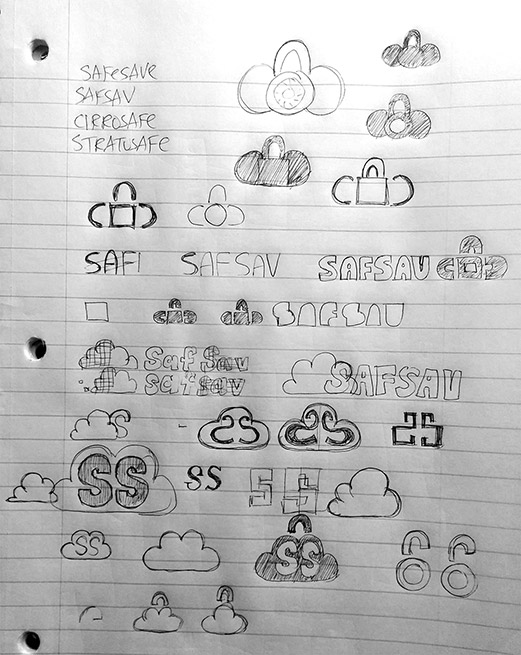 SAFESAVE
SAFSAV
CIRROSAFE
STRATUSAFE
SAFI SAFSAV SAFSAV
SAFSAV
Saf Sav
safsav SAFSAV
S
SS SS SS
SS SS S S
SS SS